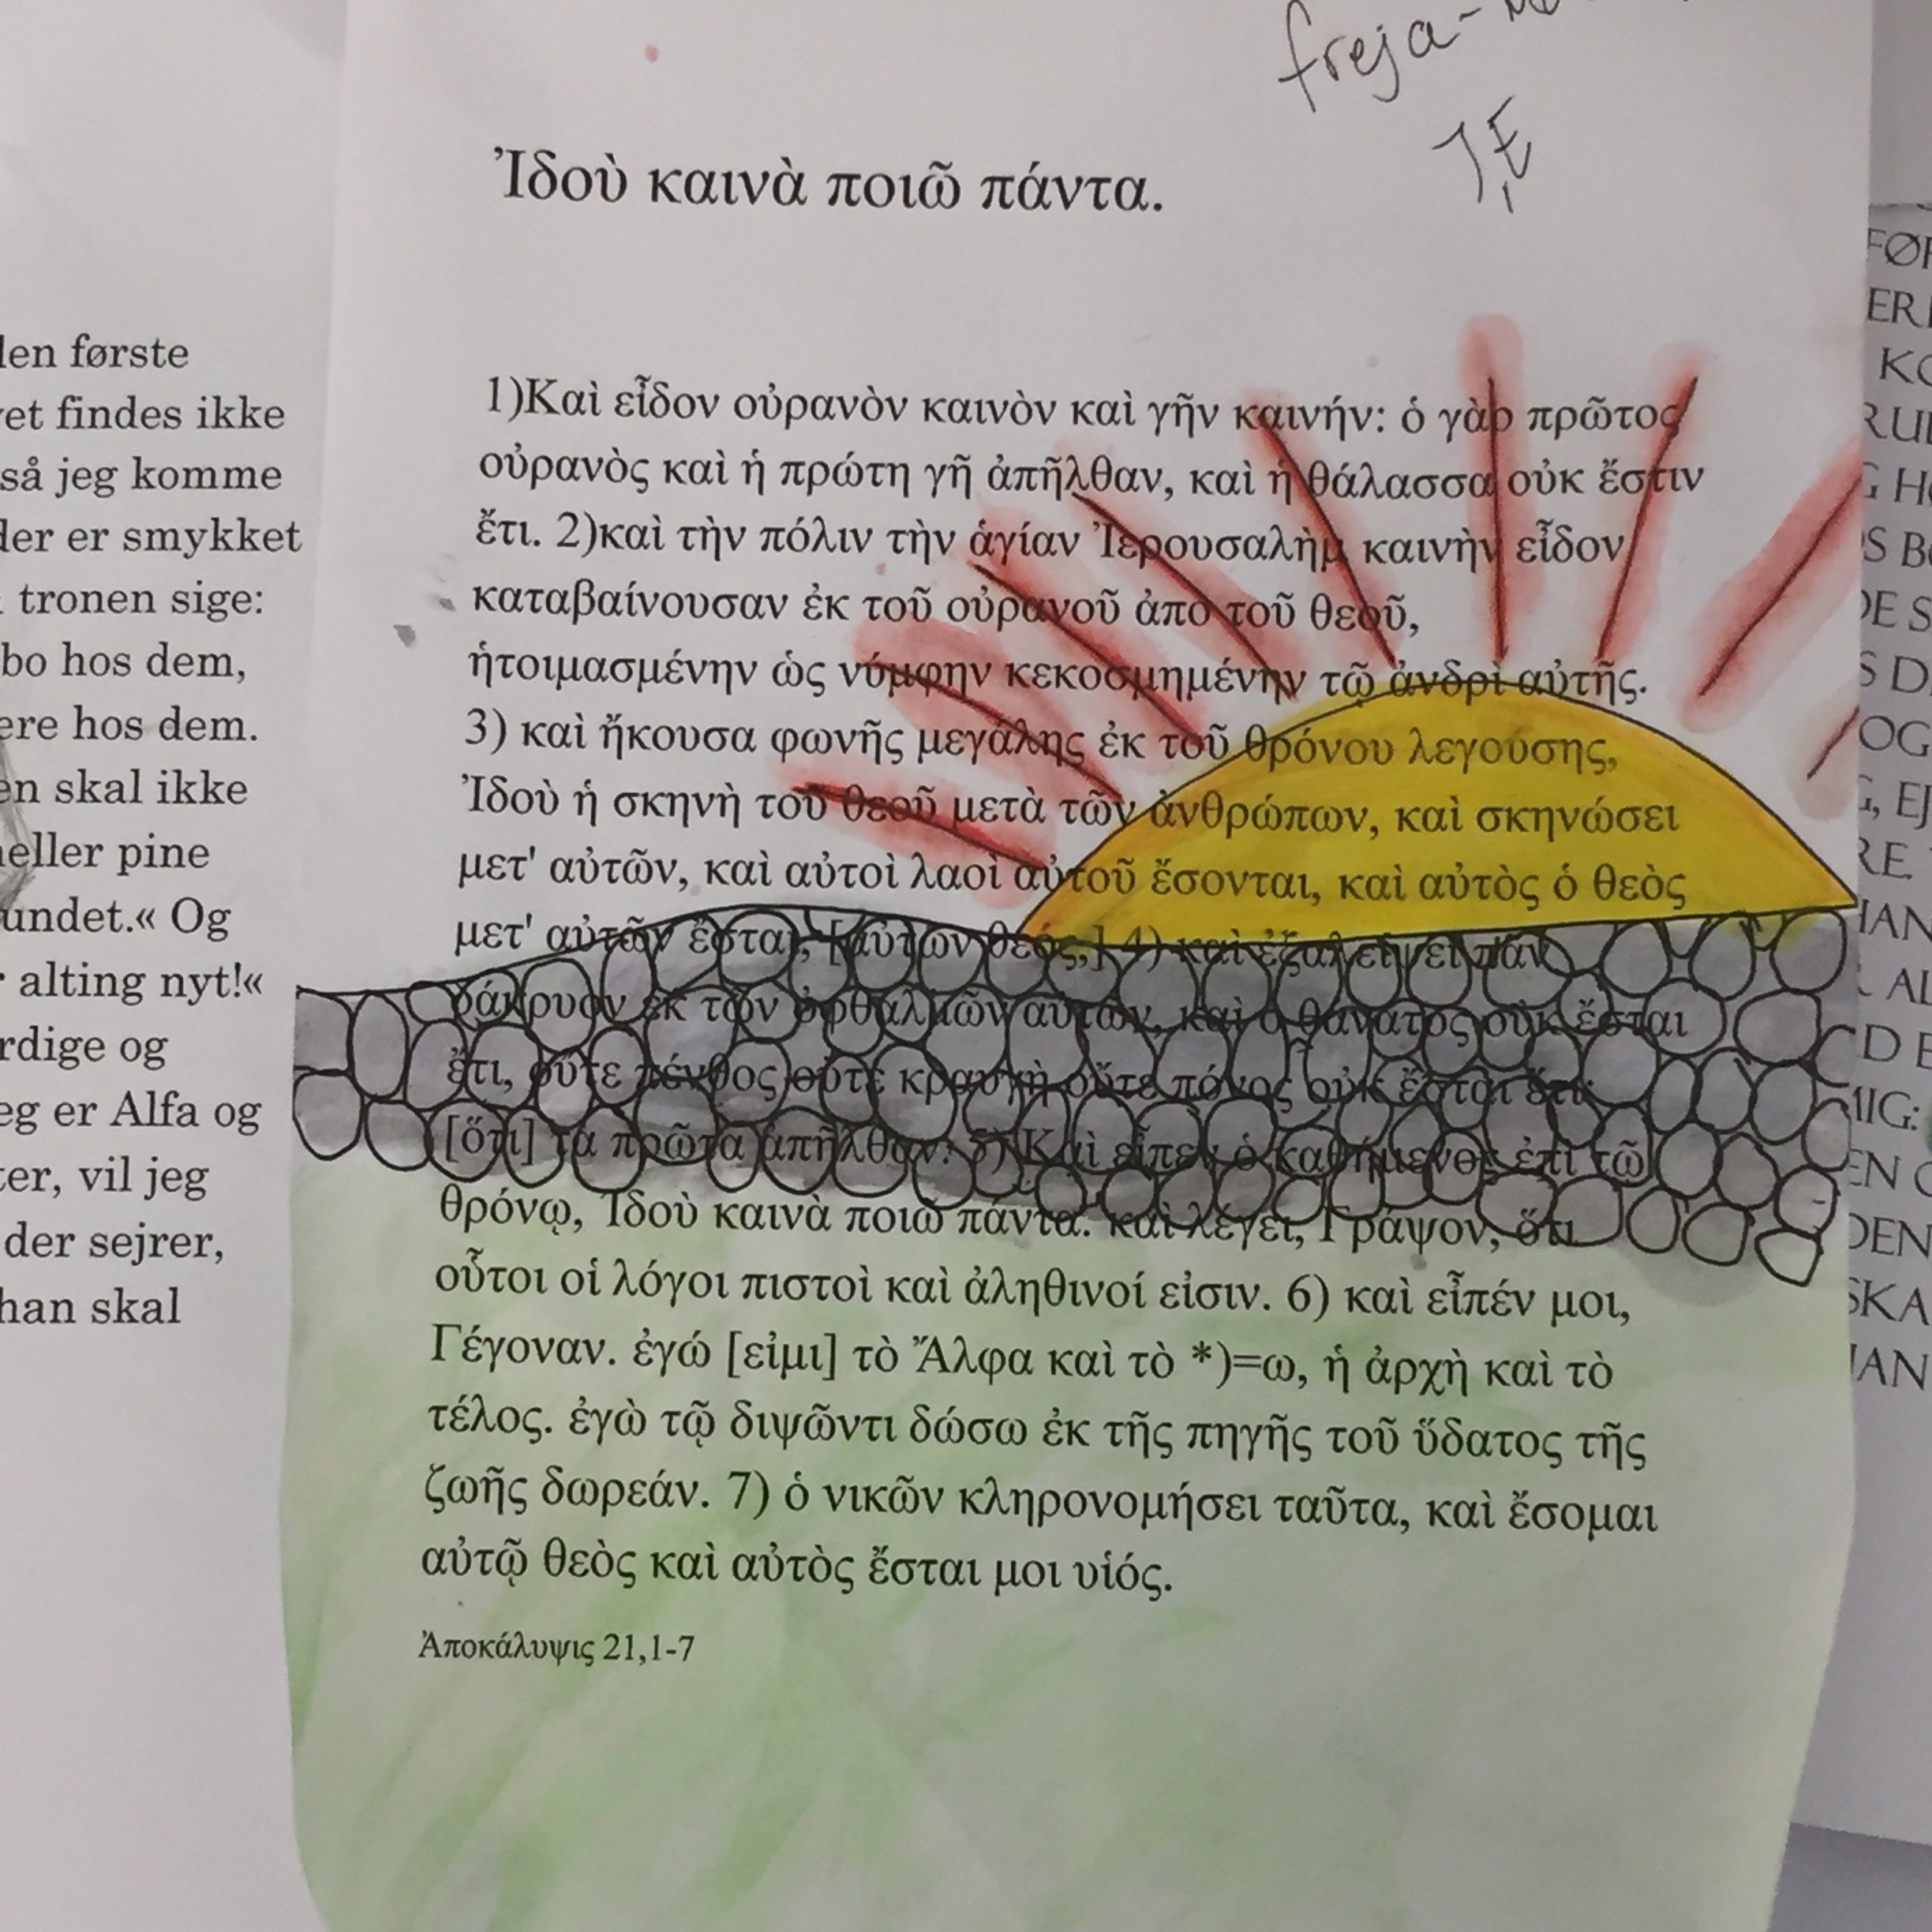 freja-
7,E
Ἰδοὺ καινὰ ποιῶ πάντα.
1)Καὶ εἶδον οὐρανὸν καινὸν καὶ γῆν καινήν: ὁ γὰρ πρῶτος
οὐρανὸς καὶ ἡ πρώτη γῆ ἀπῆλθαν, καὶ ἡ θάλασσα οὐκ ἔστιν
ἔτι. 2)καὶ τὴν πόλιν τὴν ἁγίαν Ἰερουσαλὴμ καινὴν εἶδον
καταβαίνουσαν ἐκ τοῦ οὐρανοῦ ἀπὸ τοῦ θεοῦ,
ἡτοιμασμένην ὡς νύμφην κεκοσμημένην τῷ ἀνδρὶ αὐτῆς.
3) καὶ ἤκουσα φωνῆς μεγάλης ἐκ τοῦ θρόνου λεγούσης,
Ἰδοὺ ἡ σκηνὴ τοῦ θεοῦ μετὰ τῶν ἀνθρώπων, καὶ σκηνώσει
μετ' αὐτῶν, καὶ αὐτοὶ λαοὶ αὐτοῦ ἔσονται, καὶ αὐτὸς ὁ θεὸς
μετ' αὐτῶν ἔσται, [αὐτῶν θεός,] 4) καὶ ἐξαλείψει πᾶν
δάκρυον ἐκ τῶν ὀφθαλμῶν αὐτῶν, καὶ ὁ θάνατος οὐκ ἔσται
ἔτι, οὔτε πένθος οὔτε κραυγὴ οὔτε πόνος οὐκ ἔσται ἔτι:
[ὅτι] τὰ πρῶτα ἀπῆλθαν. 5) Καὶ εἶπεν ὁ καθήμενος ἐπὶ τῷ
θρόνῳ, Ἰδοὺ καινὰ ποιῶ πάντα. καὶ λέγει, Γράψον, ὅτι
οὗτοι οἱ λόγοι πιστοὶ καὶ ἀληθινοί εἰσιν. 6) καὶ εἶπέν μοι,
Γέγοναν. ἐγώ [εἰμι] τὸ Ἄλφα καὶ τὸ *)=ω, ἡ ἀρχὴ καὶ τὸ
τέλος. ἐγὼ τῷ διψῶντι δώσω ἐκ τῆς πηγῆς τοῦ ὕδατος τῆς
ζωῆς δωρεάν. 7) ὁ νικῶν κληρονομήσει ταῦτα, καὶ ἔσομαι
αὐτῷ θεὸς καὶ αὐτὸς ἔσται μοι υἱός.
Ἀποκάλυψις 21,1-7
første
findes ikke
så jeg komme
der er smykket
tronen sige:
bo hos dem,
hos dem.
skal ikke
eller pine
undet.« Og
alting nyt!«
og
er Alfa og
vil jeg
der sejrer,
han skal